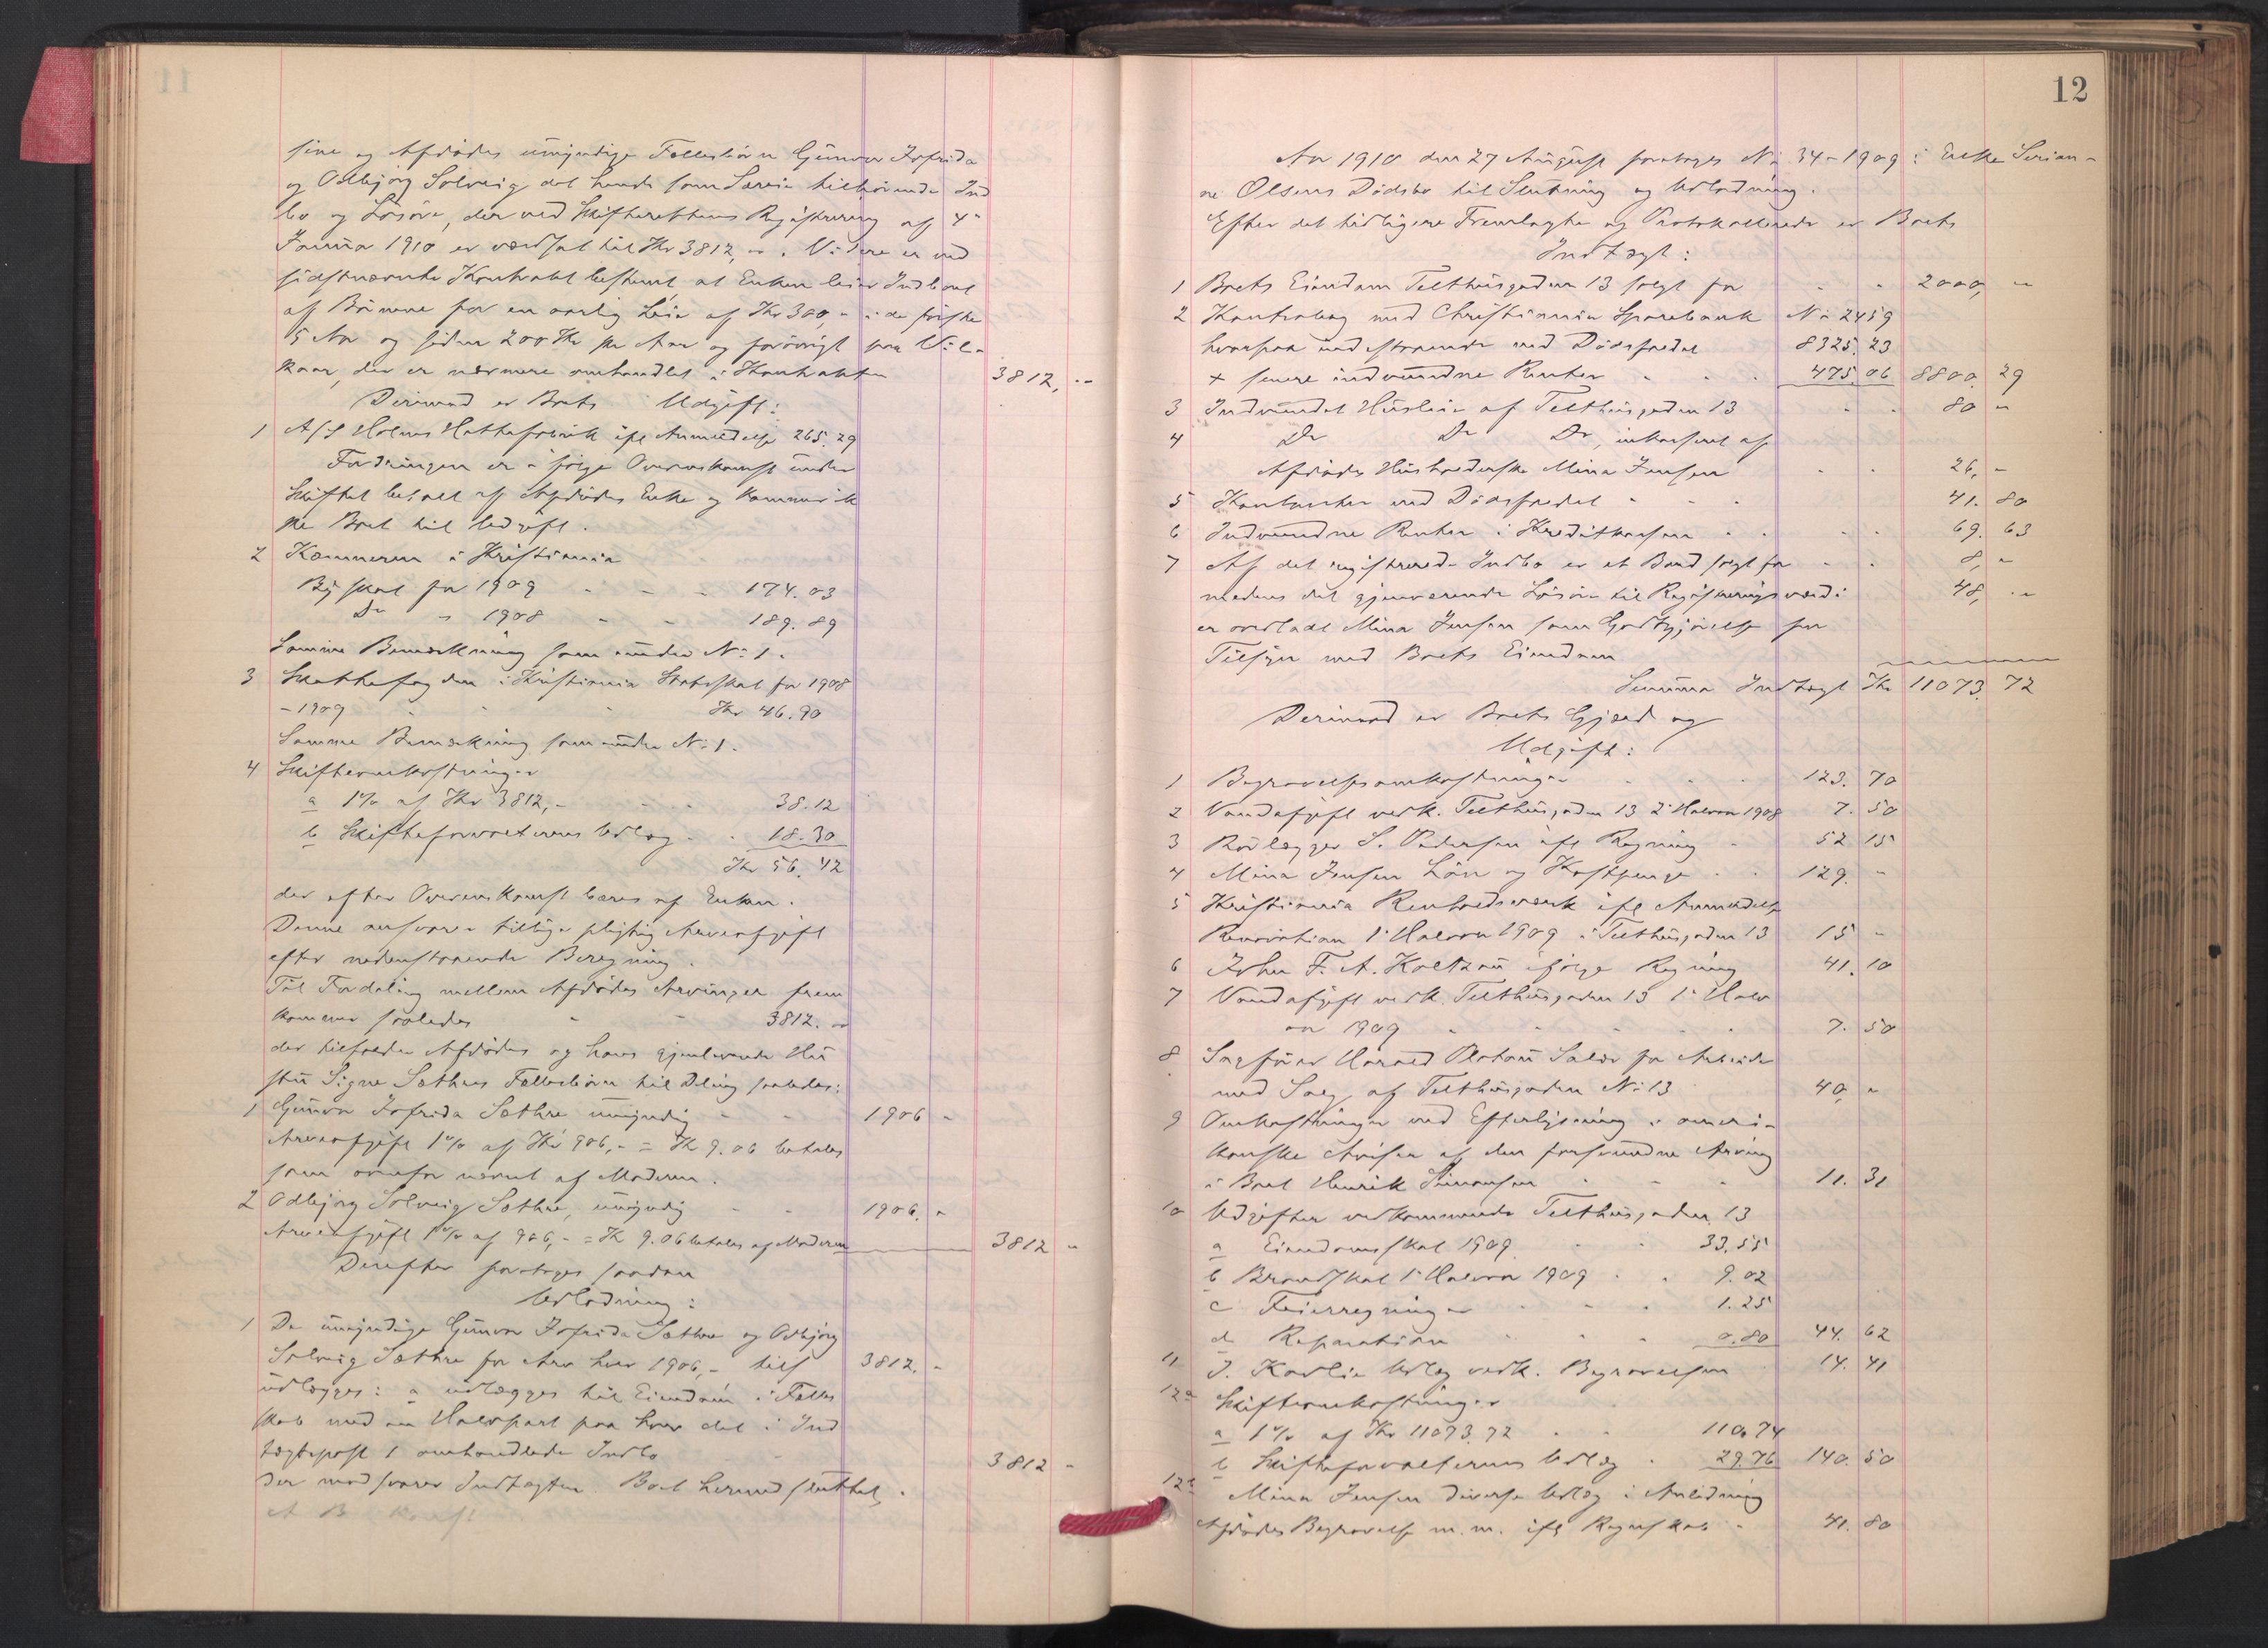 11
sine og Afdødes umyndige Fællesbörn Gunvor Josrida
og Odbjørg Solveig det hende som Særeie tilhörende Ind
bo og Lösöre, der ved Skifterettens Registrering af 4'
Januar 1910 er værdsat til Kr 3812, - . Videre er ved
sidstnævnte Kontrakt bestemt at Enken leier Indboet
af Börnene for en aarlig Leie af Kr 300,- i de förste
5 Aar og siden 200 Kr pr Aar og forövrigt paa Vil-
kaar, der er nærmere omhandlet i Kontrakten 3812, --
Derimod er Boets Udgift:
1 A/S Holms Hattefabrik ifl Anmeldelse 265.29
Fordringen er i følge Overenskomst under
Skiftet betalt af Afdødes Enke og kommer ik
ke Boet til Udgift.
2 Kæmneren i Kristiania
Byskat for 1909 - - - 174.03
Do " 1908 - - 189.89
Samme Bemærkning som under No 1.
3 Skattefogden i Kristiania Statsskat for 1908
- 1909 - - - Kr 46.90
Samme Bemærkning som under No 1.
4 Skifteomkostninger
a 1% af Kr 3812,- - - - 38.12
b Skifteforvalterens Udlæg - . 18.30
Kr 56.42
der efter Overenskomst bæres af Enken.
Denne ansvarer tillige pligtig Arveafgift
efter nedenstaaende Beregning.
Til Fordeling mellem Afdødes Arvinger frem
kommer saaledes - - 3812. -
der tilfalder Afdødes og hans gjenlevende Hu
stru Signe Sæthres Fællesbörn til Deling saaledes:
1 Gunvor Josrida Sæthre umyndig - - 1906 -
Arveafgift 1% af Kr 906,- = Kr 9.06 betales
som ovenfor nævnt af Moderen.
2 Odbjørg Solveig Sæthre, umyndig - - 1906. -
Arveafgift 1% af 906,- = Kr 9.06 betales af Moderen 3812 -
Derefter foretoges saadan
Udlodning:
1 De umyndige Gunvor Josrida Sæthre og Odbjørg
Solveig Sæthre for Arv hver 1906,- tils 3812. -
udlægges: a udlægges til Eiendom i Fælles
skab med en Halvpart paa hver det i Ind
tægtspost 1 omhandlede Indbo 3812 -
der modsvarer Indtægten. Boet hermed sluttet.
12
Aar 1910 den 27 August foretoges No 34-1909 i Enke Serian-
ne Olsens Dødsbo til Slutning og Udlodning.
Efter det tidligere Fremlagte og Protokollerede er Boets
Indtægt:
1 Boets Eiendom Telthusgaden 13 solgt for - - 2000, -
2 Kontrabog med Christiania Sparebank No 2459
hvorpaa indestaaende ved Dødsfaldet 8325.23
+ senere indvundne Renter - . . 475.06 8800. 29
3 Indvundet Husleie af Telthusgaden 13 . . 80 -
4 Do Do Do, inkasseret af
Afdødes Husholderske Mina Jensen - - 26, -
5 Kontanter ved Dødsfaldet - - - 41. 80
6 Indvundne Renter i Kreditkassen - . . . 69. 63
7 Af det registrerede Indbo er et Bord solgt for - . 8, -
medens det gjenværende Lösöre til Registreringsværdi 48, --
er overladt Mina Jensen som Godtgjörelse for
Tilsyn med Boets Eiendom
Summa Indtægt Kr 11073. 72
Derimod er Boets Gjæld og
Udgift:
1 Begravelsesomkostninger . . . 123. 70
2 Vandafgift vedk. Telthusgaden 13 2' Halvaar 1908 7. 50
3 Rörlægger S. Pedersen ifl Regning - 52 15
4 Mina Jensen Lön og Kostpenge . . 129. -
5 Kristiania Renholdsværk ifl Anmeldelse
Renovation 1' Halvaar 1909 i Telthusgaden 13 15 -
6 John F. A. Koltzau ifølge Regning 41. 10
7 Vandafgift vedk. Telthusgaden 13 1' Halv
aar 1909 - - - - 7. 50
8 Sagförer Harald Platou Salær for Arbeide
med Salg af Telthusgaden No 13 40, -
9 Omkostninger ved Efterlysning i ameri-
kanske Aviser af den forsvundne Arving
i Boet Henrik Simensen - - - 11. 31
10 Udgifter vedkommende Telthusgaden 13
a Eiendomsskat 1909 - - 33.55
b Brandskat 1' Halvaar 1909 . . 9.02
c Feierregninger - . . 1.25
d Reparation - - - 0.80 44. 62
11 J. Karlie Udlæg vedk. Begravelsen 14. 41
12a Skifteomkostninger
a 1% af Kr 11073.72 - . 110.74
b Skifteforvalterens Udlæg . 29.76 140. 50
12b Mina Jensen diverse Udlæg i Anledning
Afdødes Begravelse m. m. ifl Regnskab - 41. 80